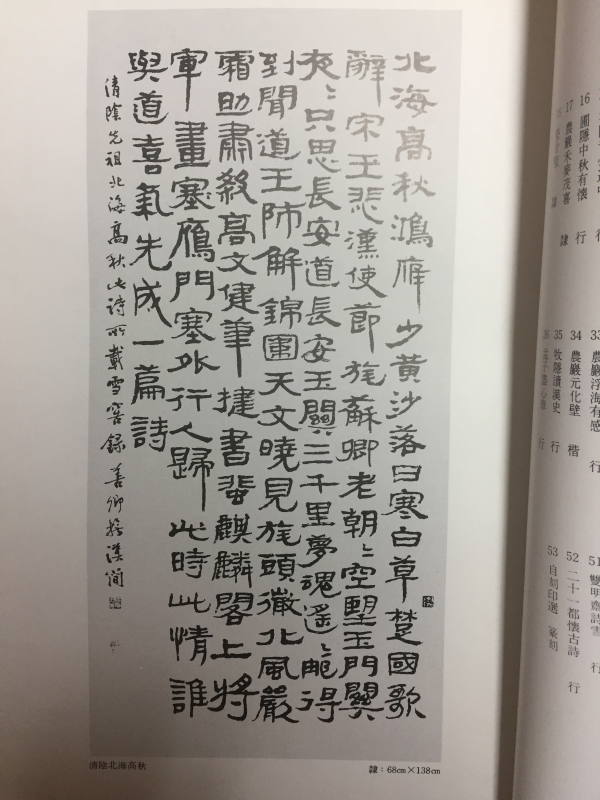 北海高秋鴻雁少黃沙落日寒白草楚國歌
辭宋玉悲漢使節旄蘇卿老朝〻空望玉門關
夜〻只思長安道長安玉關三千里夢魂遙〻能得
到聞道王師解錦圍天文曉見旄頭徹北風嚴
霜助肅殺高文健筆捷書蜚麒麟閣上將
軍畫塞鴈門塞外行人歸此時此情誰
與道喜氣先成一篇詩
清陰先祖北海高秋此詩所載雪窖錄 善卿
清陸北海高秋
隸：68cm×138cm
16 圃隱中秋有懷 行
17 農巖禾麥茂喜 隸
33 農巖浮海有感 行
34 農巖元化壁 楷
35 牧隱讀漢史 行
36 行
51 雙明齋詩雪 行
52 二十一都懷古詩 行
53 自刻印選 篆刻